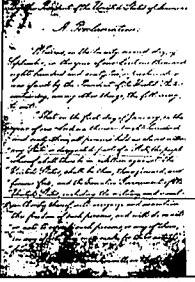 By the President of the United States of America
A Proclamation.
Whereas, on the twenty-second day of
September, in the year of our Lord one thousand
eight hundred and sixty-two, a
was issued by the President of the United States
containing, among other things, the following,
to wit:
That on the first day of January, in the
year of our Lord one thousand eight hundred
and sixty-three, all persons held as slaves within
any State or designated part of a State, the people
whereof shall then be in rebellion against the
United States, shall be then, thenceforward, and
forever free; and the Executive Government of the
United States, including the military and naval
shall recognize and maintain
the freedom of such persons, and will do no act
or acts to repress such persons, or any of them,
in any